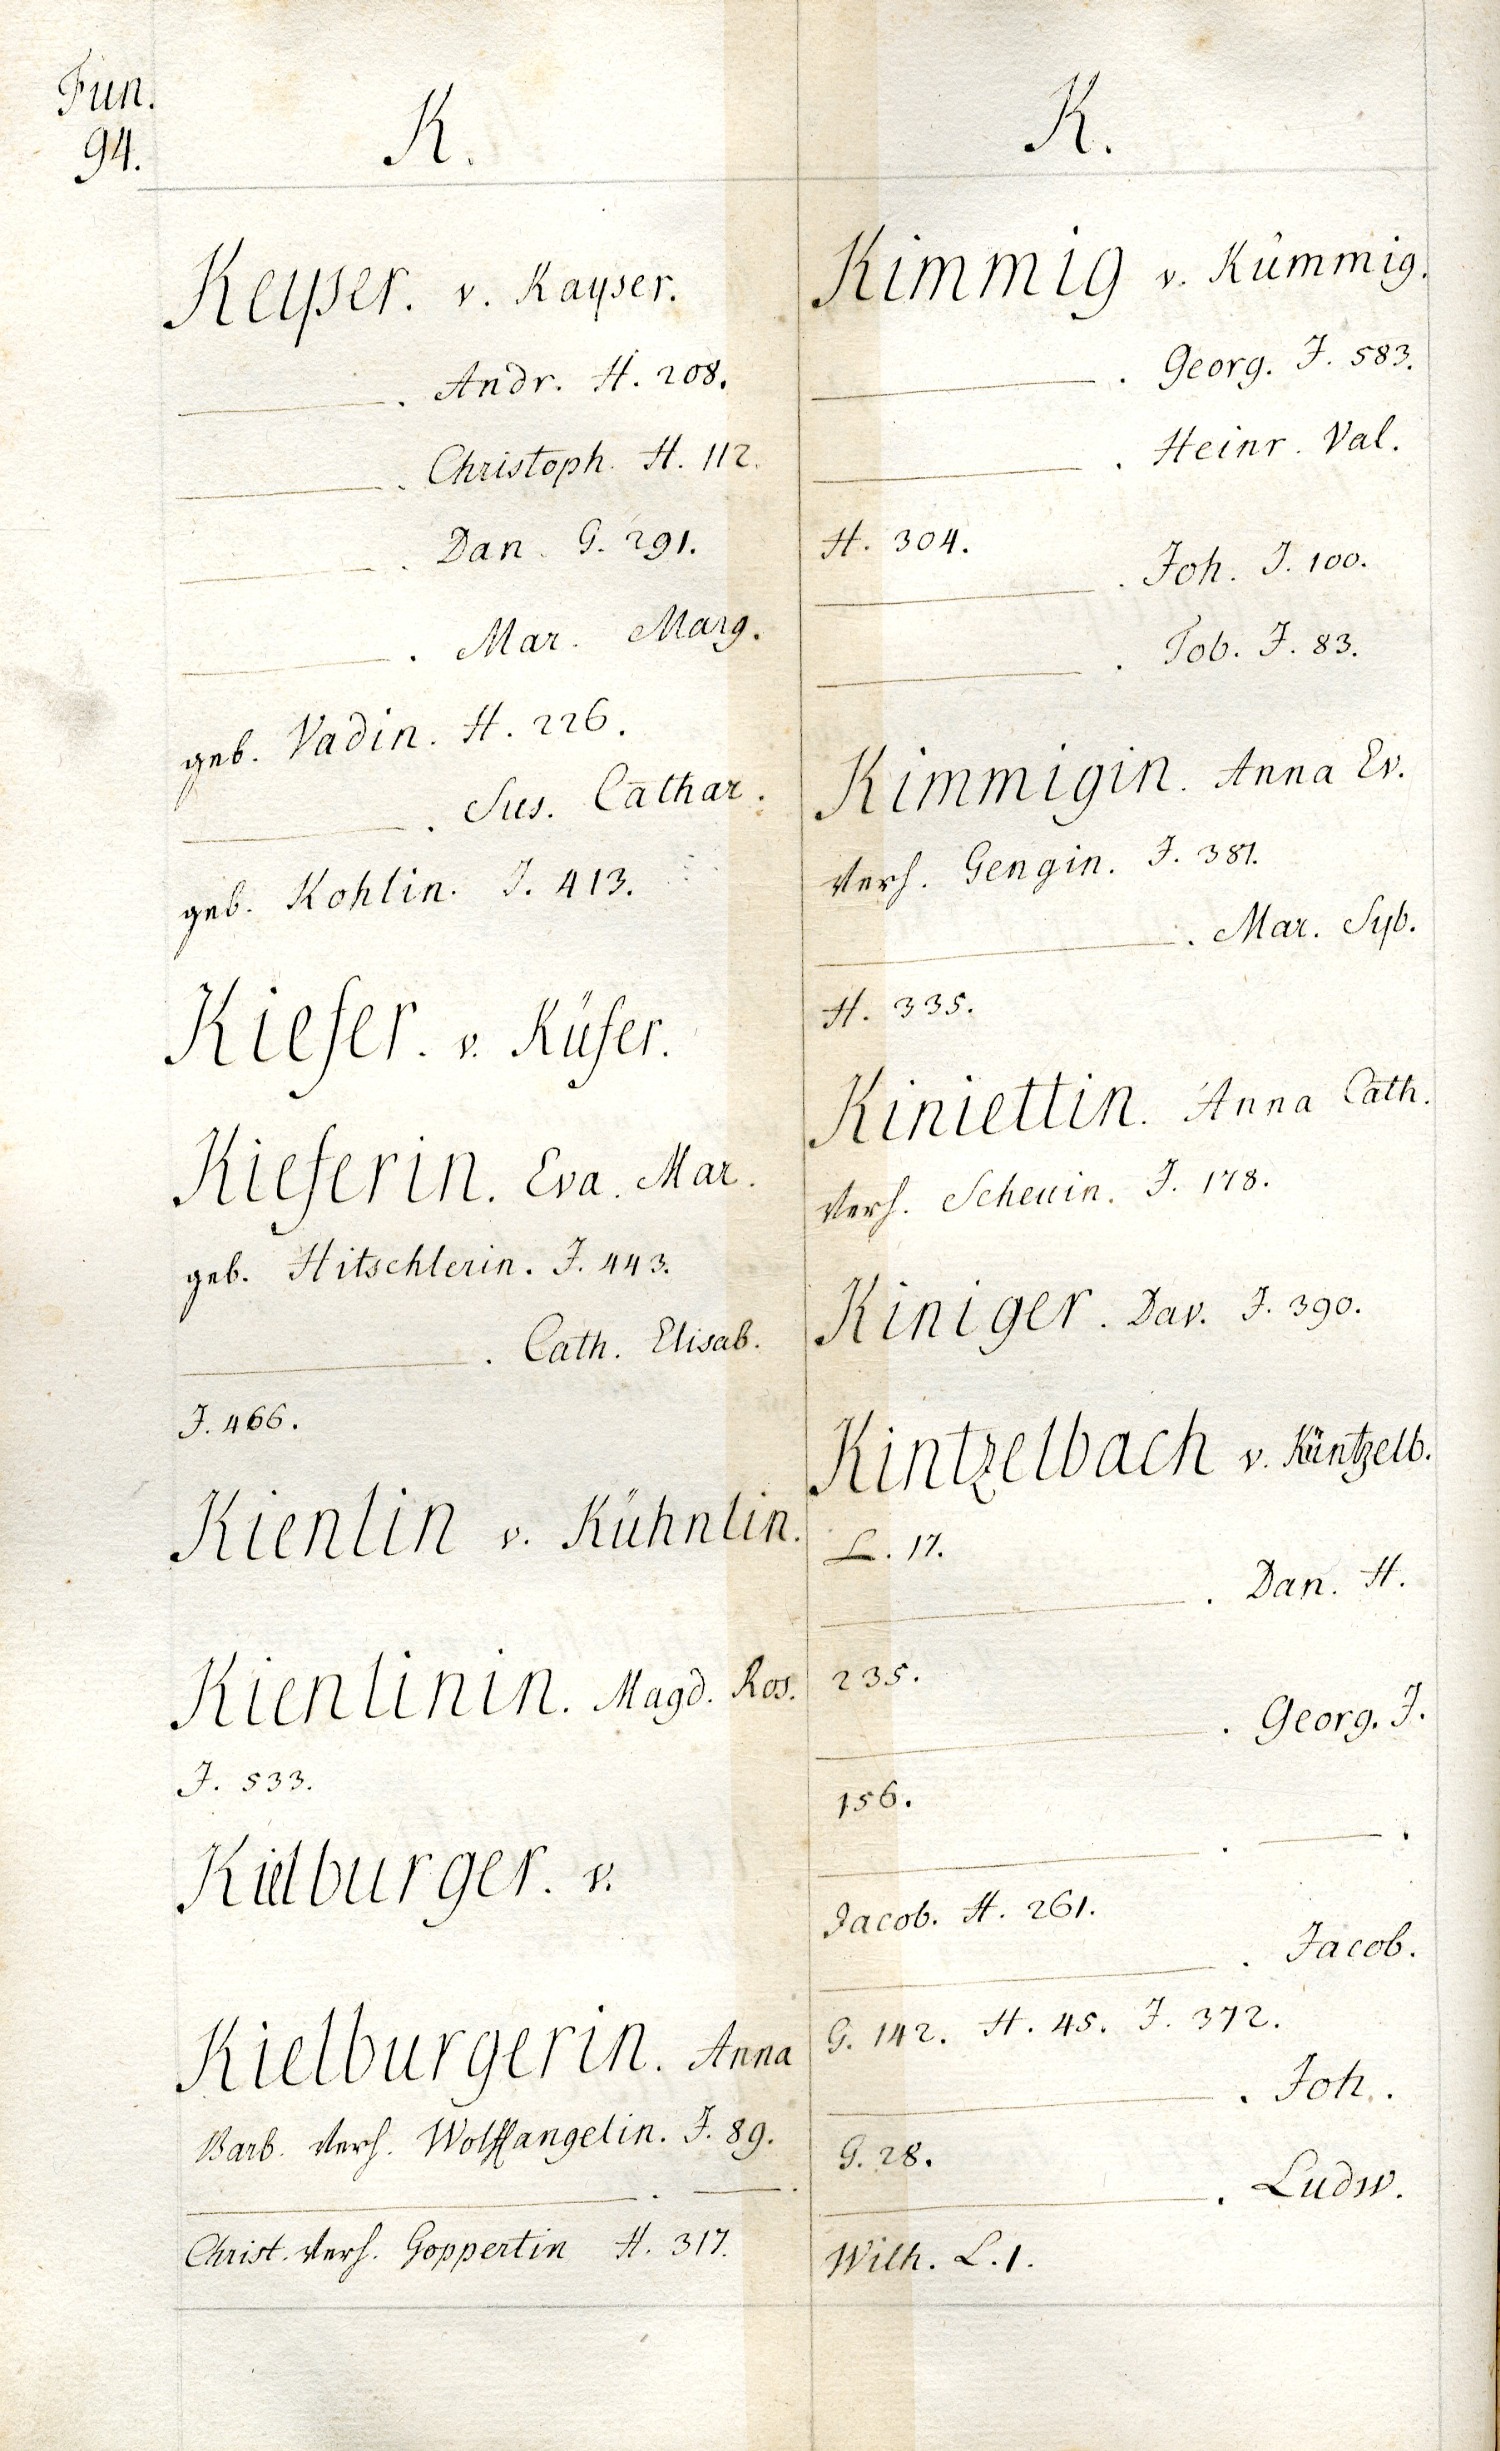 Fun.
94.
K.
Keyser. v. Kayser.
———. Andr. H. 208.
———. Christoph. H. 112.
———. Dan. G. 291.
———. Mar. Marg.
geb. Vadin. H. 226.
———. Sus. Cathar.
geb. Kohlin. J. 413.
Kiefer. v. Küfer.
Kieferin. Eva. Mar.
geb. Hitschlerin. J. 443.
———. Cath. Elisab.
J. 466.
Kienlin v. Kühnlin.
Kienlinin. Magd. Ros.
J. 533.
Kielburger. v.
Kielburgerin. Anna
Barb. verh. Wolffangelin. J. 89.
———. ———.
Christ. verh. Goppertin H. 317.
K.
Kimmig v. Kümmig.
———. Georg. J. 583.
———. Heinr. Val.
H. 304.
———. Joh. J. 100.
———. Tob. J. 83.
Kimmigin. Anna Ev.
verh. Gengin. J. 381.
———. Mar. Syb.
H. 335.
Kiniettin. Anna Cath.
verh. Scheuin. J. 178.
Kiniger. Dav. J. 390.
Kintzelbach v. Küntzelb.
L. 17.
———. Dan. H.
235.
———. Georg. J.
156.
———. ———.
Jacob. H. 261.
———. Jacob.
G. 142. H. 45. J. 372.
———. Joh.
G. 28.
———. Ludw.
Wilh. L. 1.